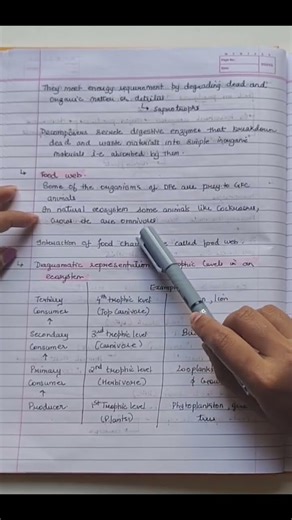 They meet energy requirement by degrading dead and
organic matter or detritus
↳ Saprotrophs
Decomposers secrete digestive enzymes that breakdown
dead and waste materials into simple inorganic
materials i.e. absorbed by them.
↳ Food web
Some of the organisms of DFC are prey to GFC
animals
In natural ecosystem some animals like cockroaches,
crows etc are omnivores
Interaction of food chain called food web.
↳ Diagrammatic representation trophic levels in an
ecosystem
Example
Tertiary Consumer 4th trophic level (Top Carnivore) lion
↑
Secondary Consumer 3rd trophic level (Carnivore)
↑
Primary Consumer 2nd trophic level (Herbivore) Zooplankton &
↑
Producer 1st Trophic level (Plants) Phytoplankton, tree